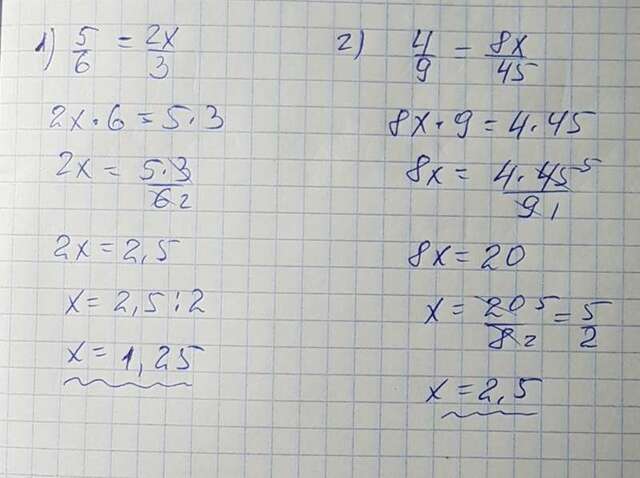 1) 5/6 = 2x/3
2x · 6 = 5 · 3
2x = 5 · 3/6 2
2x = 2,5
x = 2,5 : 2
x = 1,25
2) 4/9 = 8x/45
8x · 9 = 4 · 45
8x = 4 · 45 5/9 1
8x = 20
x = 20 5/8 2 = 5/2
x = 2,5